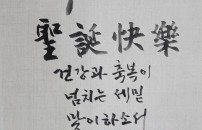 聖誕快樂
건강과 축복이
넘치는 세밑
맞이하소서